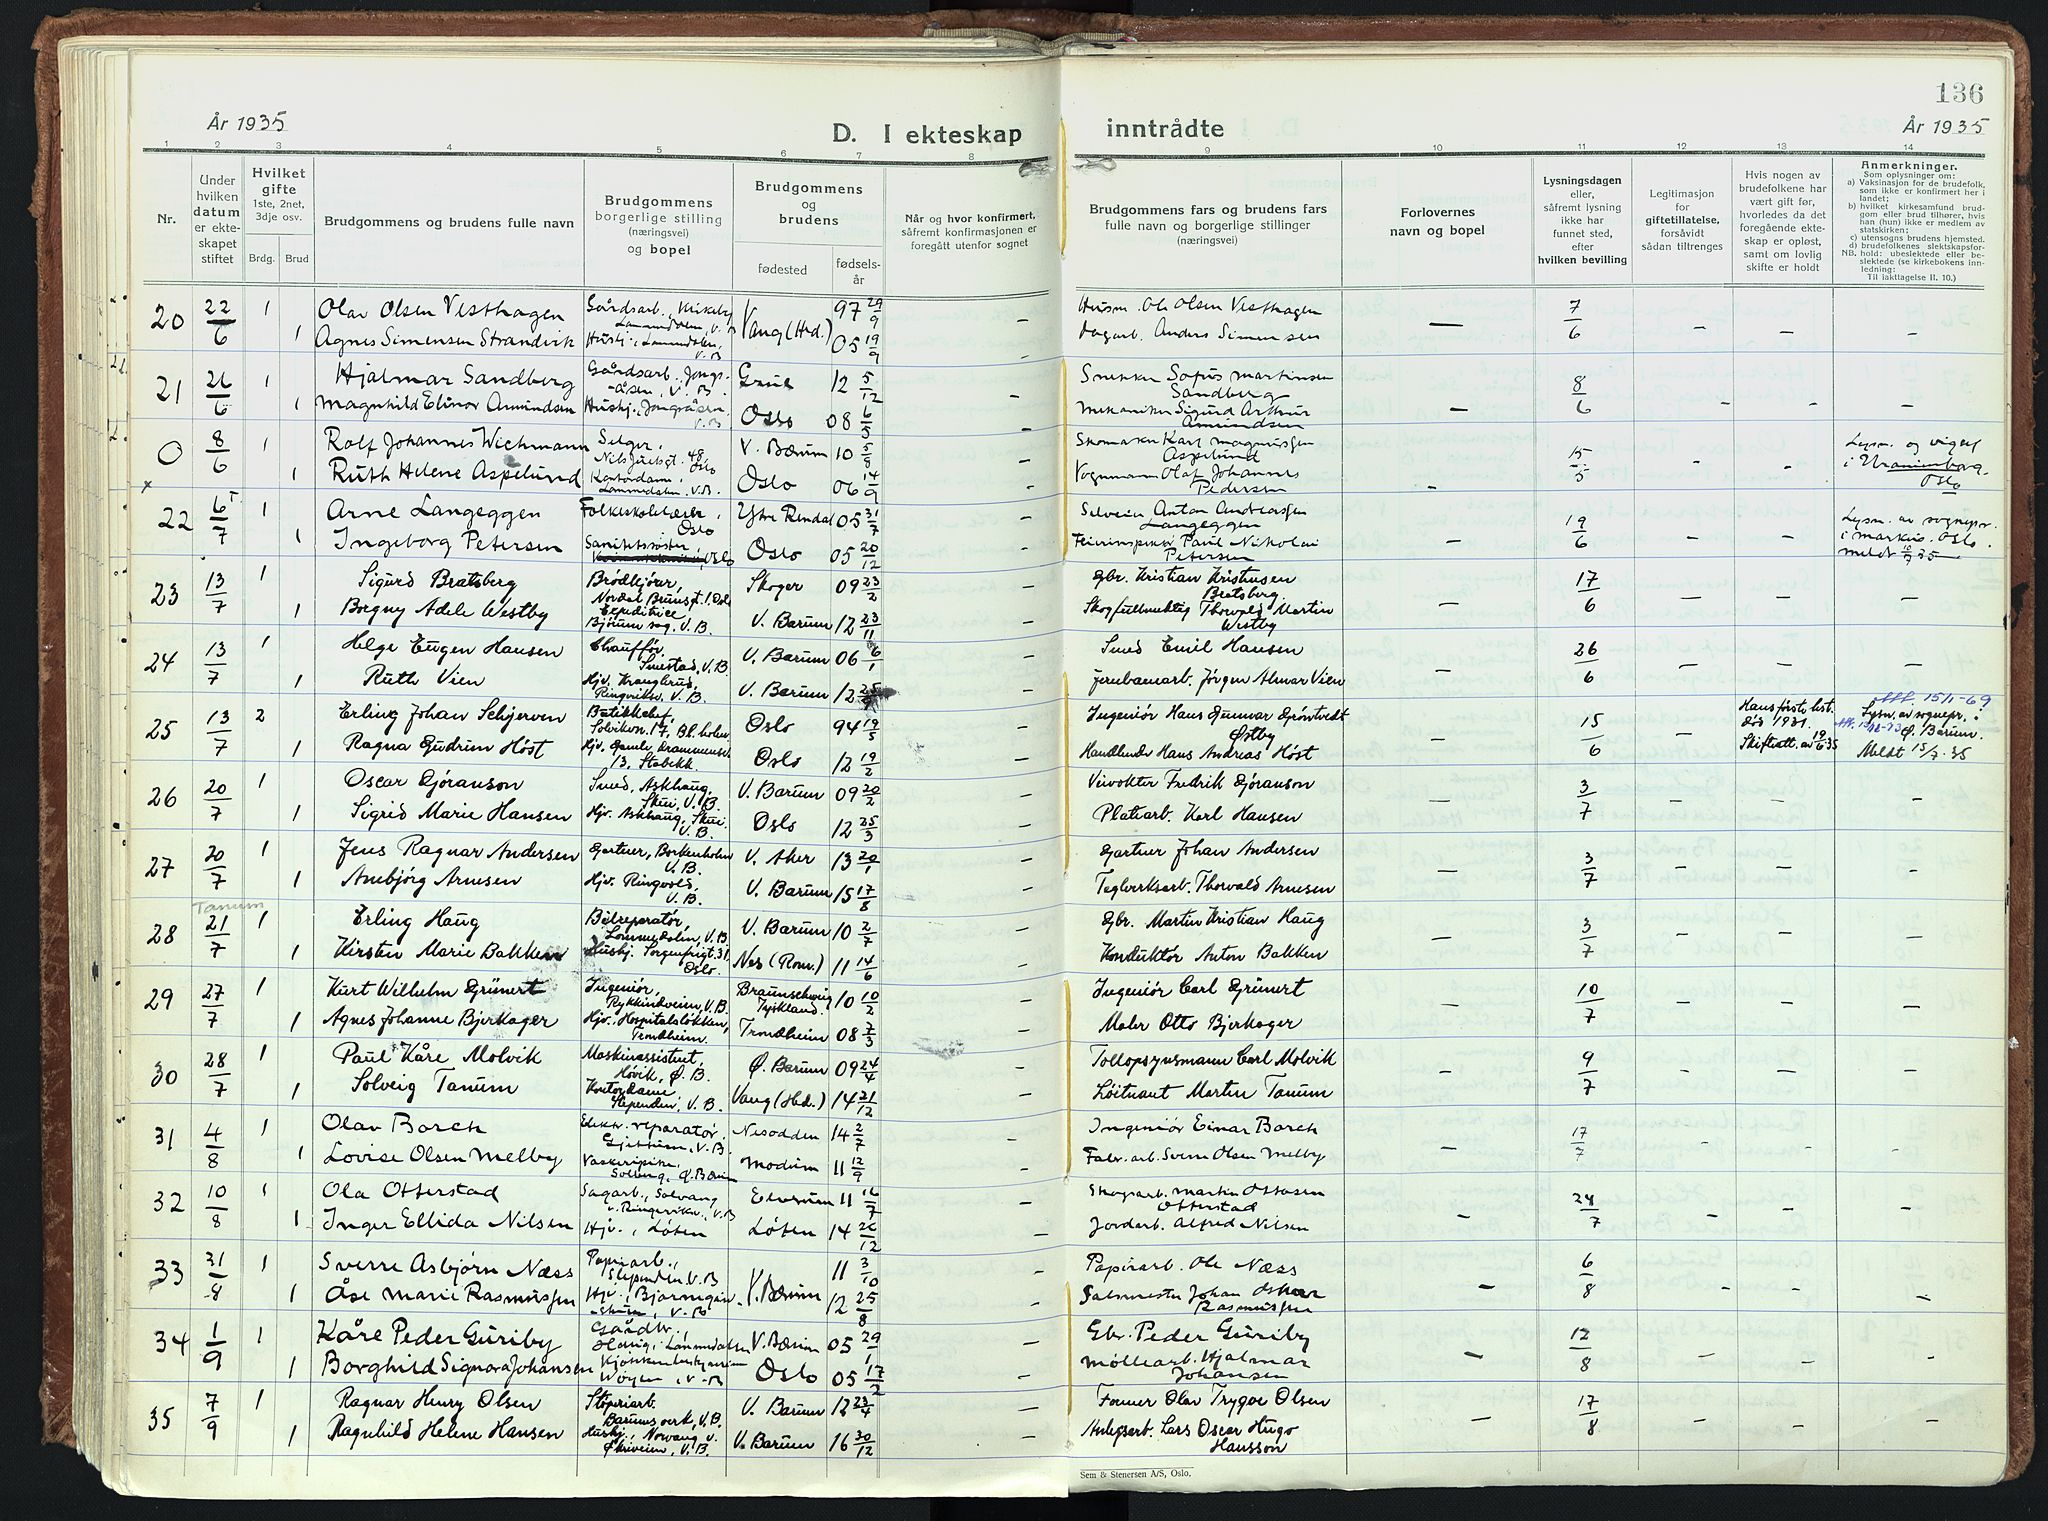 136
År 1935
D. I ekteskap inntrådte
År 1935
1 2 3 4 5 6 7 8 9 10 11 12 13 14
Nr.
Under hvilken datum er ekteskapet stiftet
Hvilket gifte 1ste, 2net, 3dje osv.
Brdg. Brud
Brudgommens og brudens fulle navn
Brudgommens borgerlige stilling (næringsvei) og bopel
Brudgommens og brudens
fødested
fødselsår
Når og hvor konfirmert, såfremt konfirmasjonen er foregått utenfor sognet
Brudgommens fars og brudens fars fulle navn og borgerlige stillinger (næringsvei)
Forlovernes navn og bopel
Lysningsdagen eller, såfremt lysning ikke har funnet sted, efter hvilken bevilling
Legitimasjon for giftetillatelse, forsåvidt sådan tiltrenges
Hvis nogen av brudefolkene har vært gift før, hvorledes da det foregående ekteskap er opløst, samt om lovlig skifte er holdt
Anmerkninger.
Som oplysninger om:
a) Vaksinasjon for de brudefolk, som ikke er konfirmert her i landet;
b) hvilket kirkesamfund brudgom eller brud tilhører, hvis han (hun) ikke er medlem av statskirken;
c) utensogns brudens hjemsted.
d) brudefolkenes slektskapsforhold: ubeslektede eller beslektede (se kirkebokens innledning:
NB.
Til iakttagelse II. 10.)
20 22/6 1 Olav Olsen Vesthagen Gårdsarb., Kirkeby Lommedalen, V. B Vang (Hed.) 97 29/9 Husm. Ole Olsen Vesthagen 7/6
1 Agnes Simensen Strandvik Hushj., Lommedalen, V. B 05 19/9 Dagarb. Anders Simensen
21 26/6 1 Hjalmar Sandberg Gårdsarb., Jongsåsen, V. B. Grue 12 5/12 Snekker Sofus Martinsen Sandberg 8/6
1 Magnhild Elinor Amundsen Hushj., Jongsåsen, V. B Oslo 08 6/5 Mekaniker Sigurd Arthur Amundsen
0 8/6 1 Rolf Johannes Wichmann Selger, Nils Juelsgt. 48 Oslo V. Bærum 10 5/8 Skomaker Karl Magnussen Aspelund 15/5 Lysn. og vigsel i Uranienborg, Oslo
1 Ruth Helene Aspelund Kontordame, Lommedalen, V. B. Oslo 06 14/9 Vognmann Olaf Johannes Pedersen
22 6/7 1 Arne Langeggen Folkeskolelærer, Oslo Ytre Rendal 05 31/7 Selveier Anton Andreassen Langeggen 19/6 Lysn. av sognepr. i Markus, Oslo. meldt 10/7 35
1 Ingeborg Petersen Sanitetssøster, Oslo Oslo 05 20/12 Feierinspektør Paul Nikolai Petersen
23 13/7 1 Sigurd Bratsberg Brødkjører, Nordal Brunsgt. 1. Oslo Skoger 09 23/2 Gbr. Kristian Kristensen Bratsberg. 17/6
1 Borgny Adele Westby Expeditrice Bjørum sag, V. B. V. Bærum 12 23/11 Skogfullmektig Thorvald Martin Westby
24 13/7 1 Helge Eugen Hansen Chauffør, Smestad, V. B V. Bærum 06 6/1 Smed Emil Hansen 26/6
1 Ruth Vien Hjv. Krenglerud, Ringeriksv. V. B. V. Bærum 12 Jernbanearb. Jörgen Almar Vien
25 13/7 2 Erling Johan Schjerven Butikksjef, Solviksn. 17, Bl. holm Oslo 94 19/5 Ingeniør Hans Gunnar Grøntvedt Østby 15/6 Hans første best. død 1931. Skifteatt. av 19/6 35 Att. 15/1-69 Lysn. av sognepr. i Ø. Bærum. Meldt 15/7. 35
1 Ragna Gudrun Høst Hjv. Gamle Drammensv. 13, Stabekk Oslo 12 19/2 Handlende Hans Andreas Høst
26 20/7 1 Oscar Gjöranson Smed, Askhaug, Skui, V. B. V. Bærum 09 20/2 Veivokter Fredrik Gjöranson 3/7
1 Sigrid Marie Hansen Hjv. Askhaug, Skui. V. B. Oslo 12 25/3 Platearb. Karl Hansen
27 20/7 1 Jens Ragnar Andersen Gartner, Borkenholm V. B. V. Aker 13 20/1 Gartner Johan Andersen 3/7
1 Annbjörg Arnesen Hjv. Ringvold, V. B. V. Bærum 15 17/8 Teglverksarb. Thorvald Arnesen
Tanum
28 21/7 1 Erling Haug Bilreparatør, Lommedalen, V. B. V. Bærum 10 2/7 Gbr. Martin Kristian Haug 3/7
1 Kirsten Marie Bakken Hushj. Sorgenfrigt. 31, Oslo. Nes (Rom.) 11 14/6 Konduktør Anton Bakken
29 27/7 1 Kurt Wilhelm Grünert Ingeniør, Rykkindveien, V. B. Braunschweig Tyskland. 10 10/2 Ingeniør Carl Grünert 10/7
1 Agnes Johanne Bjerkager Hjv., Hospitalsløkken, Trondheim. Trondheim 08 7/3 Maler Otto Bjerkager
30 28/7 1 Paul Kåre Molvik Maskinassistent, Høvik, Ø. B. Ø. Bærum 09 24/4 Tollopsynsmann Carl Molvik 9/7
1 Solveig Tanum Kontordame Slependen, V. B. Vang (Hed.) 14 21/12 Løitnant Martin Tanum
31 4/8 1 Olav Borch Elektr. reparatør, Gjettum, V. B. Nesodden 14 2/7 Ingeniør Einar Borch 17/7
1 Lovise Olsen Melby Vaskeripike, Solveng, Ø. Bærum Modum 11 12/9 Fabr. arb. Sverre Olsen Melby
32 10/8 1 Ola Otterstad Sagarb., Solvang v. Ringeriksv., V. B Elverum 11 16/7 Skogsarb. Martin Ottosen Otterstad 24/7
1 Inger Ellida Nilsen Hjv., Løten Løten 14 26/12 Jordarb. Alfred Nilsen
33 31/8 1 Sverre Asbjørn Næss Papirarb., Slependen, V. B V. Bærum 11 3/10 Papirarb. Ole Næss 6/8
1 Åse Marie Rasmussen Hjv., Bjarnegårdskum, V. B 12 25/8 Salsmester Johan Oskar Rasmussen
34 1/9 1 Kåre Peder Guriby Gårdbr., Lommedalen V. Bærum 05 29/1 Gbr. Peder Guriby 12/8
1 Borghild Signora Johansen Wøyen, V. B Oslo 05 17/2 Møllearb. Hjalmar Johansen
35 7/9 1 Ragnar Henry Olsen Støperiarb. Bærums verk, V. B. V. Bærum 12 23/4 Former Olav Trygve Olsen 17/8
1 Ragnhild Helene Hansen Hushj., Norvang v. Økriveien, V. B. V. Bærum 16 30/12 Anlegsarb. Lars Oscar Hugo Hansson
Sem & Stenersen A/S, Oslo.